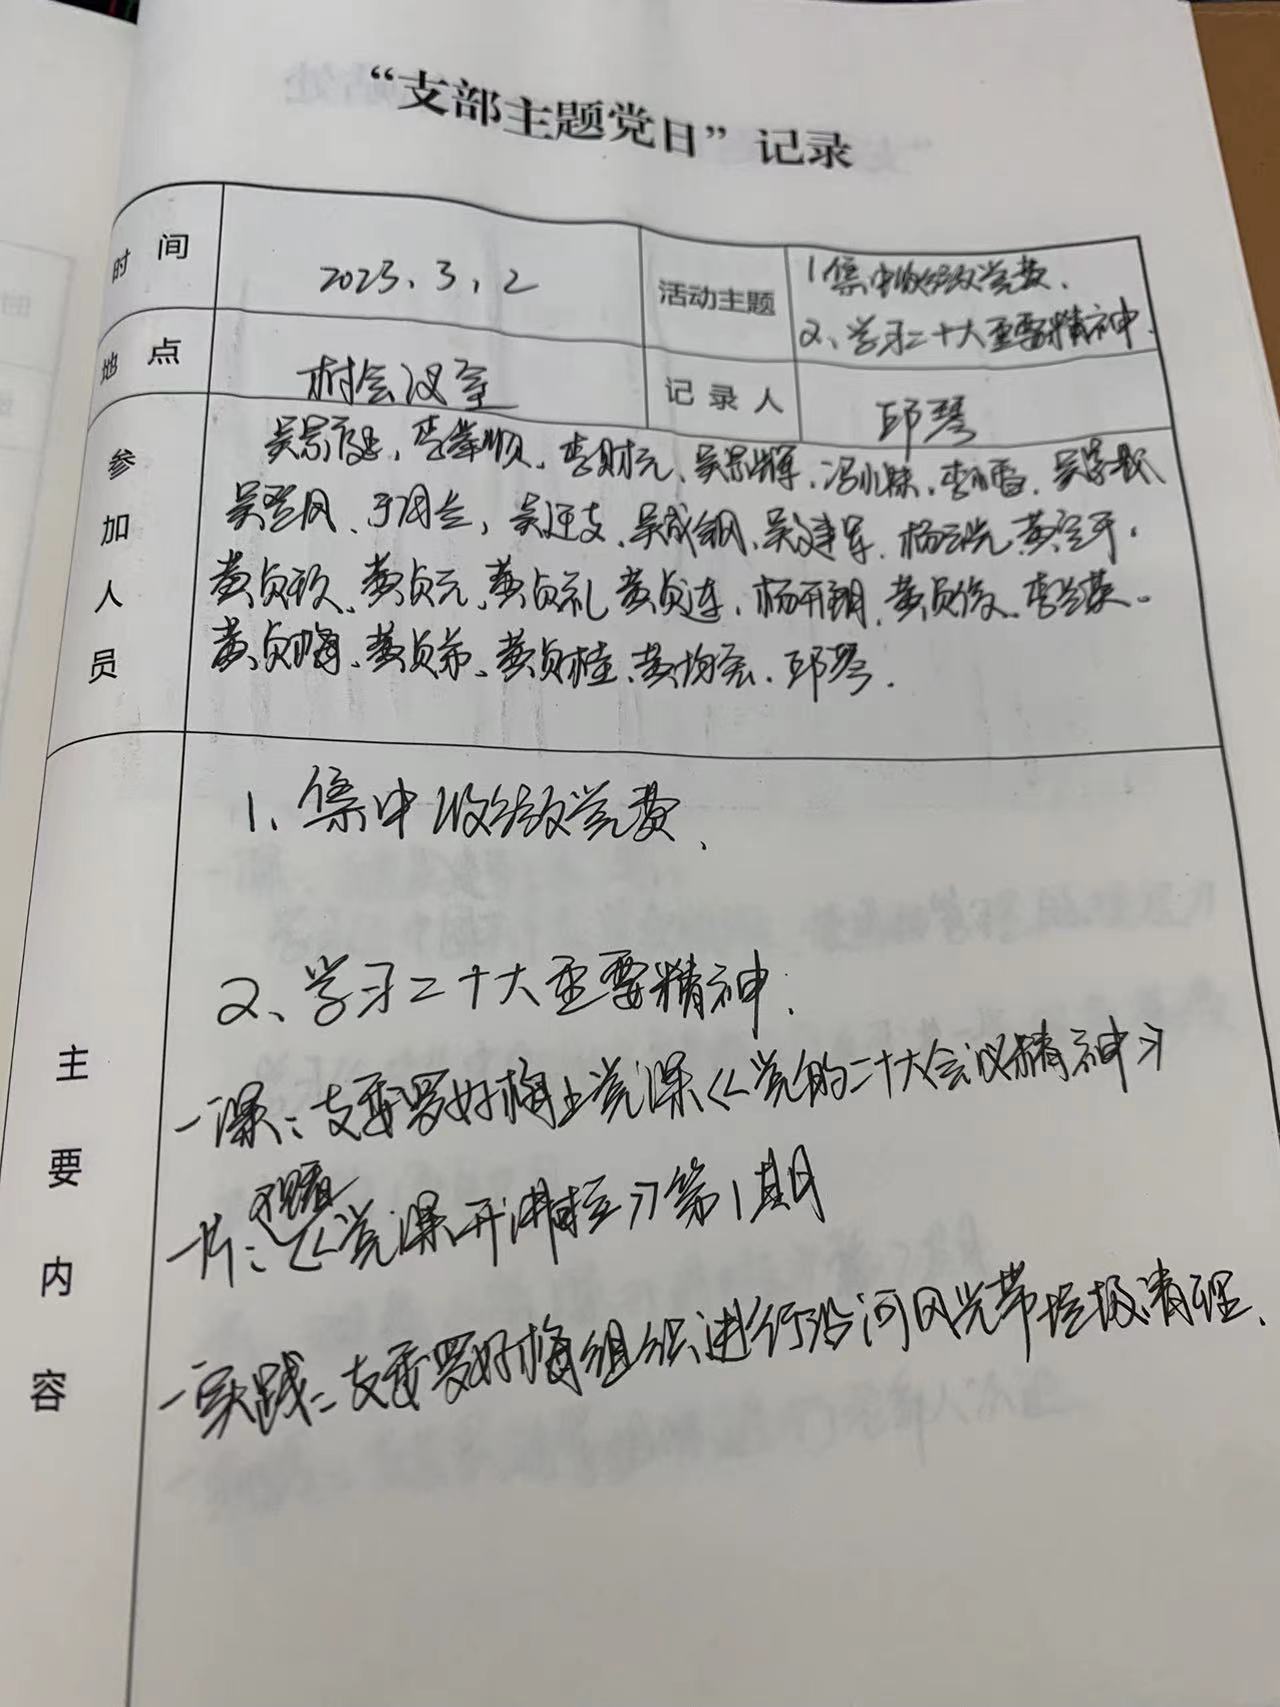 “支部主题党日”记录
时 间
2023、3,2
活动主题
1集中收缴党费、
2、学习二十大重要精神.
地 点
村会议室
记录人
邱琴
参加人员
李举顺、李财元、吴景辉、冯小妹、李小雪、
吴登风、吴廷文、吴成钢、吴建军、
黄贞钦、黄贞元、黄贞礼 黄贞连、杨开朝、黄贞俊、李兰英。
黄贞梅、黄贞弟、黄贞桂、黄均会、邱琴.
主要内容
1、集中收缴党费、
2、学习二十大重要精神.
一课:支委罗好梅上党课《党的二十大会议精神》
观看
一片:《党课开讲啦》第1期
一实践:支委罗好梅组织进行沿河风光带垃圾清理.